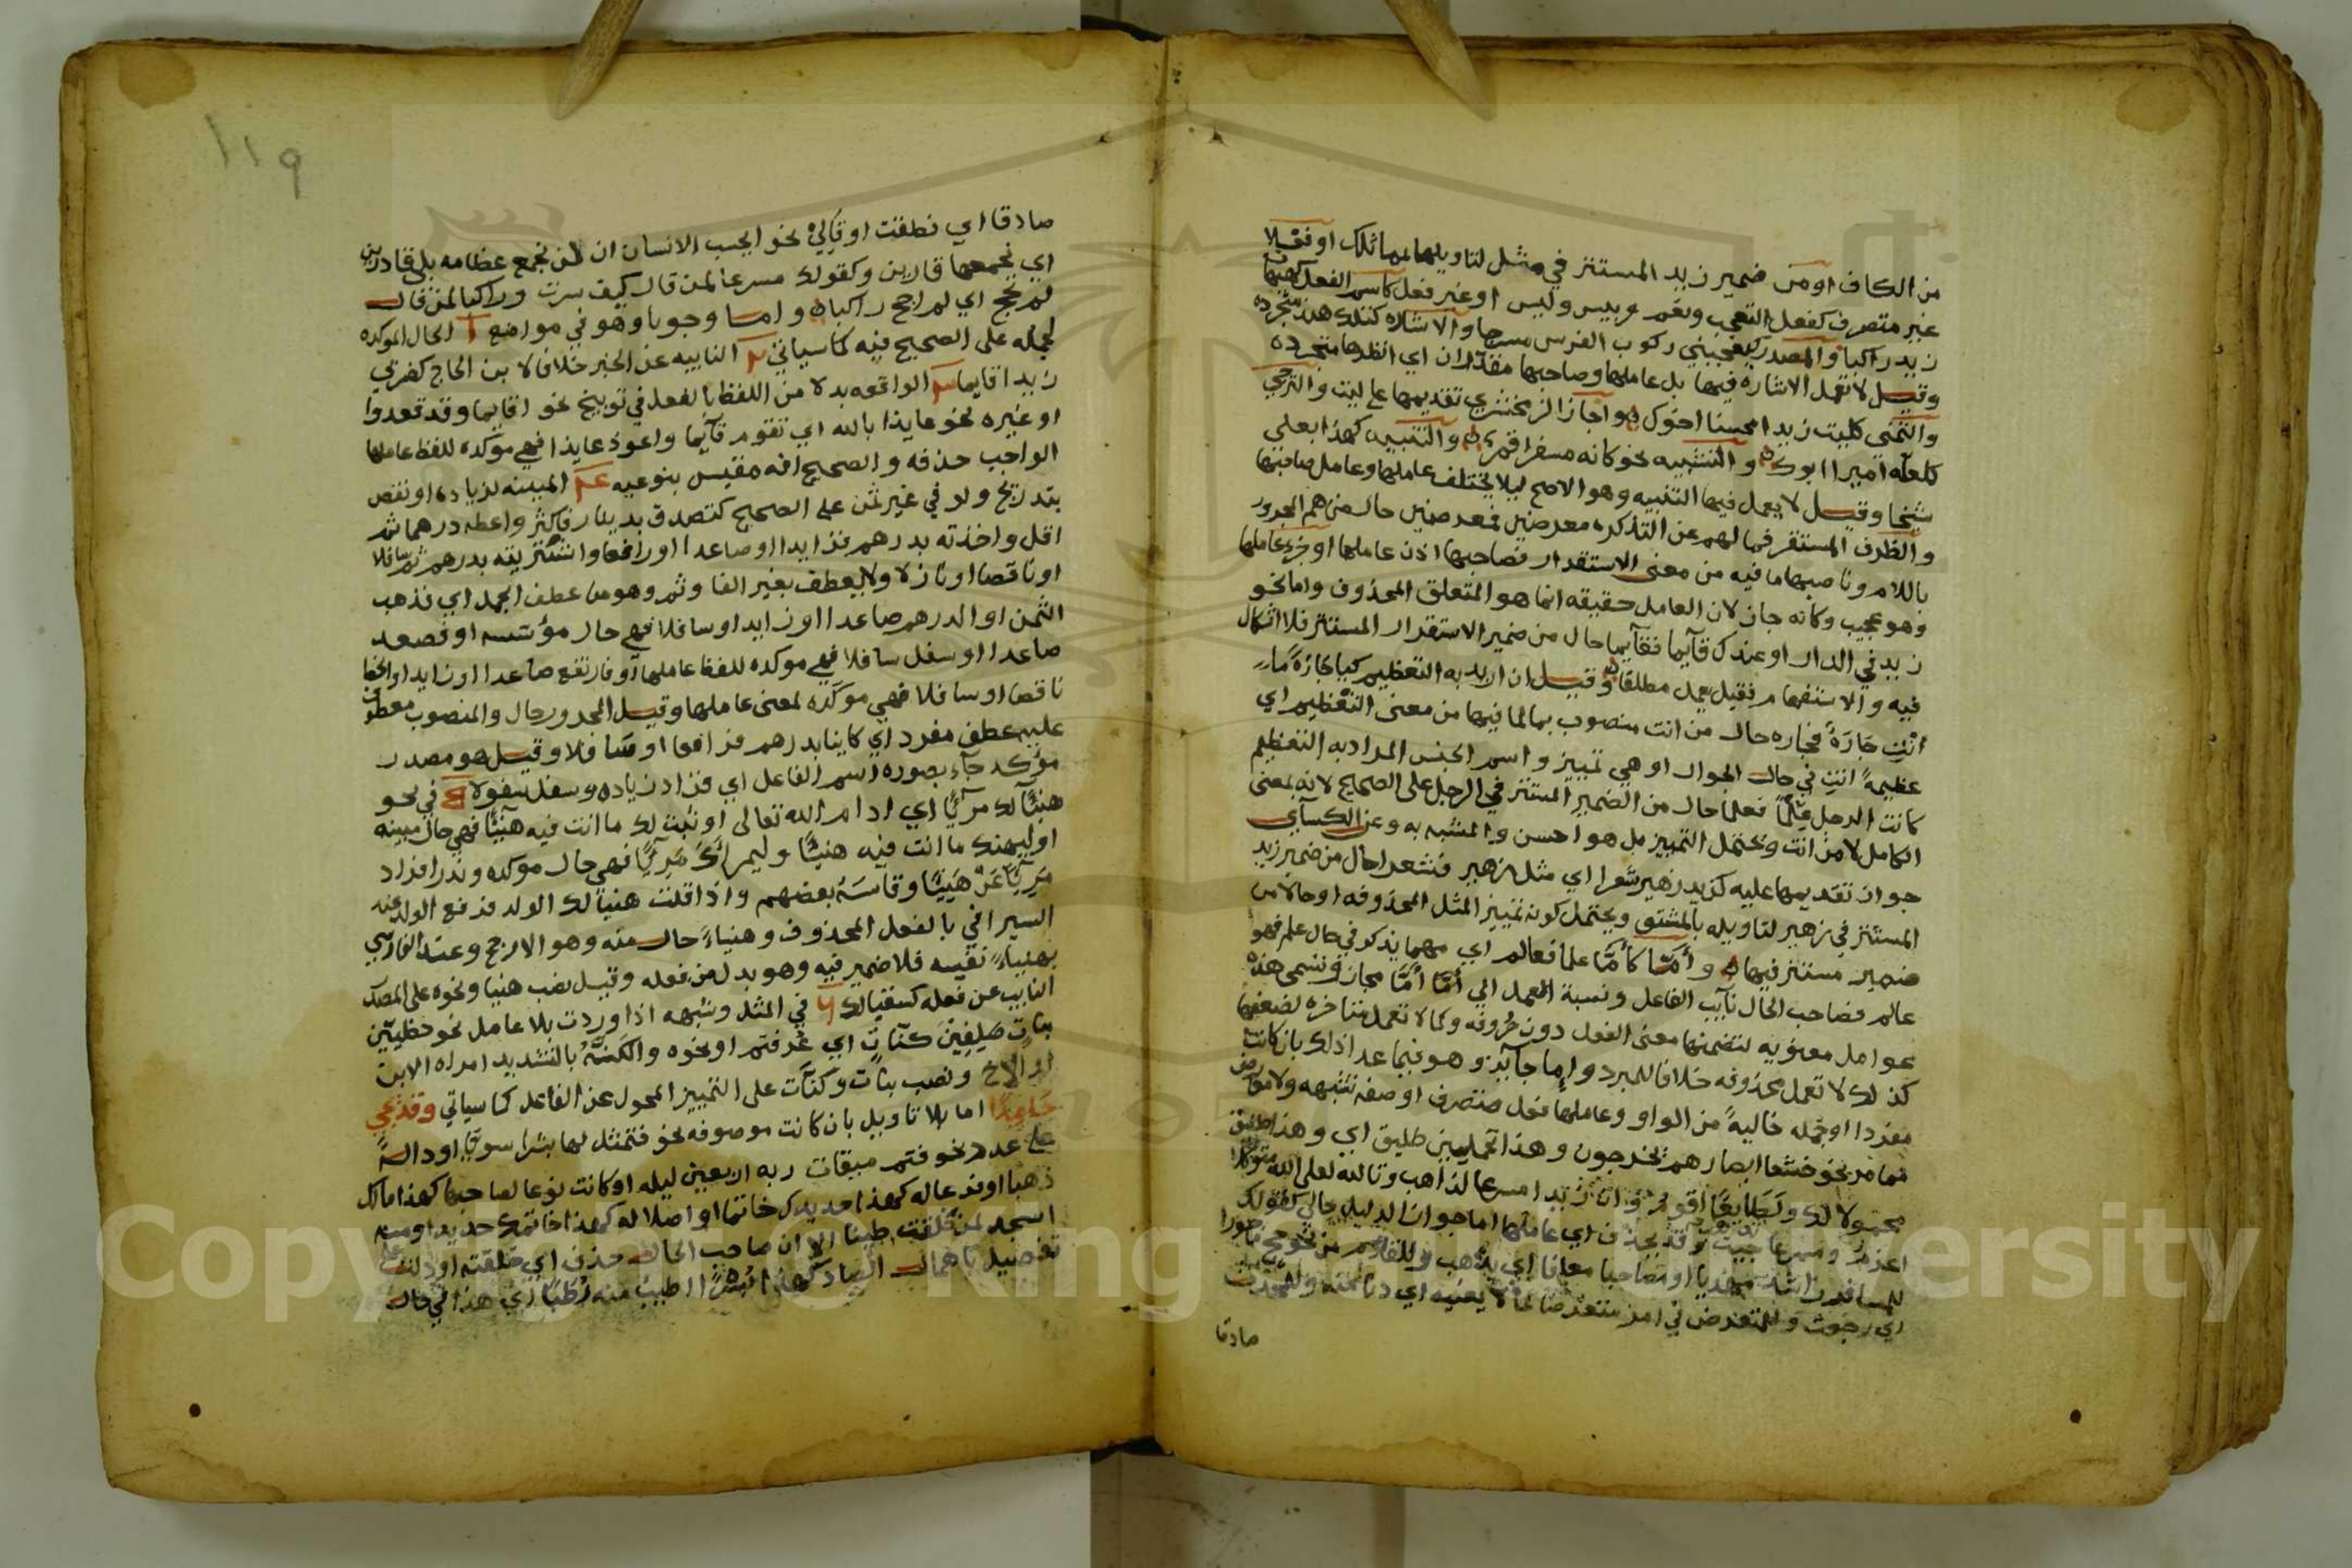 من الكاف او من ضمير زيد المستتر في مثل لتاويلها بمماثلك او فعلا
غير متصرف كفعل التعجب ونعم وبيس وليس او غير فعل كاسم الفعل كهيهات
زيد راكبا والمصدر كيعجبني ركوب الفرس مسرجا والاشاره كتلك هند متجرده
وقيل لا تعمل الاشاره فيها بل عاملها وصاحبها مقدران اي انظرها متجرده
والتمني كليت زيدا محسنا اخوك واجاز الزمخشري تقديمها على ليت والترجي
كلعله اميرا ابوك والتشبيه نحو كانه مسفرا قمر والتنبيه كهذا بعلي
شيخا وقيل لا يعمل فيها التنبيه وهو الاصح ليلا يختلف عاملها وعامل صاحبها
والظرف المستقر فما لهم عن التذكره معرضين فمعرضين حال من هم المجرور
باللام وناصبها ما فيه من معنى الاستقرار فصاحبها اذن عاملها او جزء عاملها
وهو عجيب وكانه جاز لان العامل حقيقه انما هو المتعلق المحذوف واما نحو
زيد في الدار او عندك قآيما فقآيما حال من ضمير الاستقرار المستتر فلا اشكال
فيه والاستفهام فقيل يعمل مطلقا وقيل ان اريد به التعظيم كيا جارةً ما
انتِ جَارَةً فجاره حال من انت منصوب بما لما فيها من معنى التعظيم اي
عظيمةً انتِ في حال الجوار او هي تمييز واسم الجنس المراد به التعظيم
كانت الرجل علما فعلما حال من الضمير المستتر في الرجل على الصحيح لانه بمعنى
الكامل لا من انت ويحتمل التمييز بل هو احسن والمشبه به وعن الكسآي
جواز تقديمها عليه كزيد زهير شعرا اي مثل زهير فشعرا حال من ضمير زيد
المستتر في زهير لتاويله بالمشتق ويحتمل كونه تمييز المثل المحذوفه او حالا من
ضمير مستتر فيها وأمّا كأمّا علما فعالم اي مهما يذكر في حال علم فهو
عالم فصاحب الحال نآيب الفاعل ونسبة العمل الي أمّا أمّا مجاز وتسمى هذه
عوامل معنويه لتضمنها معنى الفعل دون حُروفه وكما لا تعمل متاخره لضعفها
كذلك لا تعمل محذوفه خلافا للمبرد وإما جآيز وهو فيما عدا ذلك بان كانت
مفردا او جمله خاليةً من الواو وعاملها فعل متصرف او صفه تشبهه ولا مؤخر
فما مر نحو خشعا ابصارهم يخرجون وهذا تحملين طليق اي وهذا طليق
محمولا لك ولَطَايعًا اقوم وان زيدا مسرعا لذاهب وتالله لعلى الله متوكلا
اعذم ومسرعا جيت وقد يحذف اي عاملها اما جوازا لدليل حالي كقولك
للمسافر راشدا مهديا او مصاحبا معانا اي يذهب وللقادم من نحو حج ماجورا
اي رجعت وللمتعرض في امر متعرضا لما لا يعنيه اي دنا منه وللمحدث
صادقا
١١٩
صادقا اي نطقت او قآلي نحو ايحسب الانسان ان لن نجمع عظامه بلى قادرين
اي نجمعها قادرين وكقولك مسرعا لمن قال كيف سرت وراكبا لمن قال
لم نحج اي لم احج راكبا واما وجوبا وهو في مواضع آ الحال الموكده
لجمله على الصحيح فيه كما سياتي النايبه عن الخبر خلافا لابن الحاج كضربي
زيدا قايما الواقعه بدلا من اللفظ بالفعل في توبيخ نحو اقايما وقد قعدوا
او غيره نحو عايذا بالله اي تقوم قآيما واعوذ عايذا فهي موكده للفظ عاملها
الواجب حذفه والصحيح انه مقيس بنوعيه المبينه لزياده او نقص
بتدريج ولو في غير ثمن على الصحيح كتصدق بدينار فاكثر واعطه درهما ثم
اقل واخذته بدرهم فزايدا او صاعدا او رافعا واشتريته بدرهم ثم سافلا
او ناقصا او نازلا ولا يعطف بغير الفا وثم وهو من عطف الجمل اي فذهب
الثمن او الدرهم صاعدا او زايدا او سافلا فهي حال مؤسسه او فصعد
صاعدا او سفل سافلا فهي موكده للفظ عاملها او فارتفع صاعدا او زايدا وانحط
ناقصا او سافلا فهي موكّده لمعنى عاملها وقيل المجرور حال والمنصوب معطوف
عليه عطف مفرد اي كاينا بدرهم فرافعا او سافلا وقيل هو مصدر
مؤكد جآء بصوره اسم الفاعل اي فزاد زياده وسفل سفولا في نحو
هنيّآ لك مريّآ اي ادام الله تعالى او ثبت لك ما انت فيه هنيّئا فهي حال مبينه
او ليهنك ما انت فيه هنيئا وليمراك مَرِئيًا فهي حال موكده وندر افراد
مَريّئا عَنْ هَنِيئا وقاسَهُ بعضهم واذا قلت هنيا لك الولد فرفع الولد عند
السيرافي بالفعل المحذوف وهنياءً حال منه وهو الارجح وعند الفارسي
بهنياءً نفيسه فلا ضمير فيه وهو بدل من فعله وقيل نصب هنيا ونحوه على المصدر
النايب عن فعله كسقيا لك في المثل وشبهه اذا وردت بلا عامل نحو حظيّين
بناتٍ صَلِفِين كنّاتٍ اي عُرفتم او نحوه والكَنَّةُ بالتشديد امراه الابن
او الاخ ونصب بنات وكنّآت على التمييز المحول عن الفاعل كما سياتي وقد تجي
جامدًا اما بلا تاويل بان كانت موصوفه نحو فتمثل لها بشرا سويّا او دالةً
على عدد نحو فتم ميقات ربه اربعين ليله او كانت نوعا لصاحبها كهذا مالك
ذهبا او فرعا له كهذا حديدك خاتما او اصلا له كهذا خاتمك حديدا ومنه
اسجد لمن خلقت طينا الا ان صاحب الحال حذف اي خلقته او دلت على
تفضيل باهمال الصاد كهذا بُسْرًا اطيبُ منه رُطَبًا اي هذا في حال